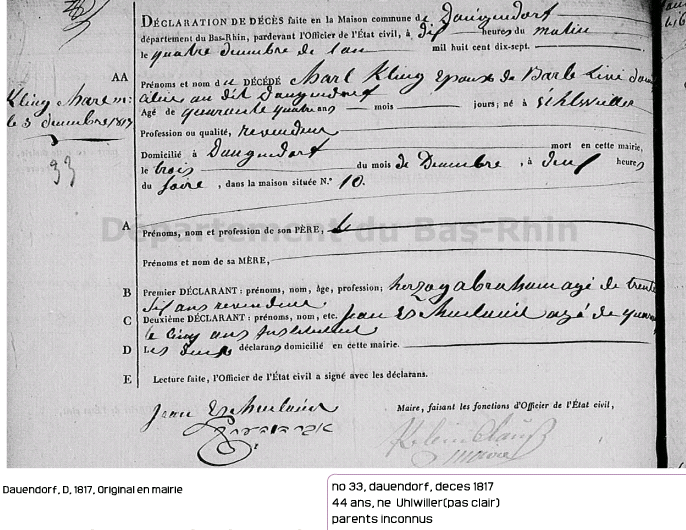 DÉCLARATION DE DÉCÈS faite en la Maison commune de Dauguendorf
département du Bas-Rhin, pardevant l'Officier de l'État civil, à dix heures du matin
le quatre decembre de l'an mil huit cent dix-sept.
AA
Prénoms et nom du DÉCÉDÉ Marx Kling Epoux de Barbe
Kling Marx
le 3 decembre 1817
33
Age de quarante quatre ans mois jours; né à
Profession ou qualité, revendeur
Domicilié à Dauguendorf mort en cette mairie,
le trois du mois de Decembre, à deux heures
du soire, dans la maison située N.° 10.
Département du Bas-Rhin
A
Prénoms, nom et profession de son PÈRE,
Prénoms et nom de sa MÈRE,
B Premier DÉCLARANT: prénoms, nom, âge, profession; herzog abraham agé de trente
six ans revendeur
C Deuxième DÉCLARANT: prénoms, nom, etc. jean agé de quaran
te cinq ans
D Les deux déclarans domicilié en cette mairie.
E Lecture faite, l'Officier de l'État civil a signé avec les déclarans.
Maire, faisant les fonctions d'Officier de l'État civil,
Jean
maire
Dauendorf, D, 1817, Original en mairie
no 33, dauendorf, deces 1817
44 ans, ne Uhlwiller(pas clair)
parents inconnus